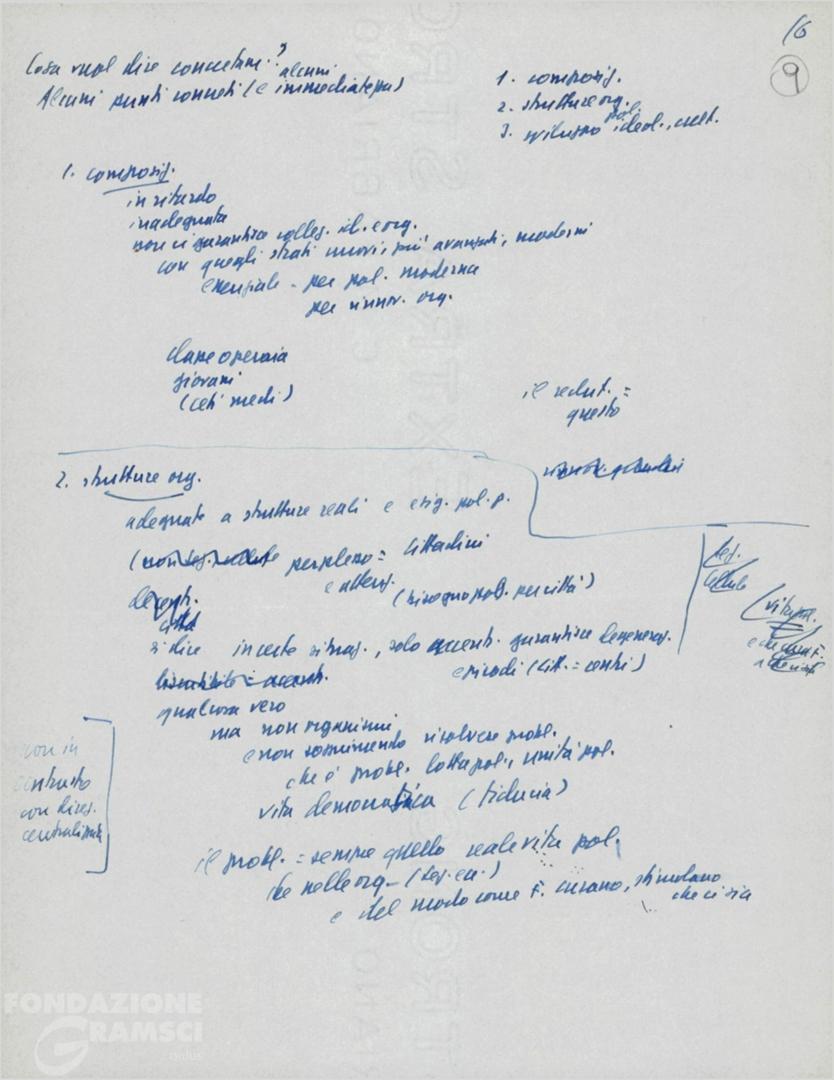 16
9
Cosa vuol dire concretam.?
alcuni
Alcuni punti concreti (e immediate
1. composiz.
2. strutture org.
pol.
3. sviluppo ideol., cult.
1. composiz.
in ritardo
inadeguata
non ci garantisce colleg. id. e org.
con quegli strati nuovi, più avanzati, moderni
essenziale - per pol. moderna
per rinnov. org.
classe operaia
giovani
(ceti medi)
il reclut. =
questo
2. strutture org.
adeguate a strutture reali e esig. pol. p.
perplesso = cittadini
(bisogno pol. per città)
decentr.
città
si dice in certe situaz., solo accentr. garantisce degeneraz.
episodi (citt. = centri)
qualcosa vero
ma non organismi
e non sopprimendo risolvere probl.
che è probl. lotta pol., unità pol.
vita democratica (fiducia)
non in
contrasto
con direz.
centralizzata
Sez.
Cellule
(vita pol.
il probl. = sempre quello reale vita pol.
che nelle org. (sez. ecc.)
e del modo come F. curano, stimolano
che ci sia
FONDAZIONE
GRAMSCI
onlus